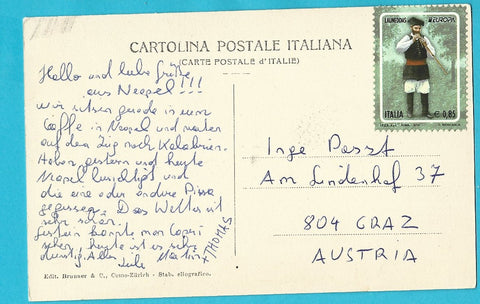 CARTOLINA POSTALE ITALIANA
(CARTE POSTALE d'ITALIE)
Hallo und liebe Grüße
aus Neapel!!!
Wir sitzen gerade in einem
Caffe in Neapel und warten
auf den Zug nach Kalabrien.
Haben gestern und heute
Neapel besichtigt und
die eine oder andere Pizza
gegessen. Das Wetter ist
sehr schön.
Gestern konnte man Capri
sehen, heute ist es sehr
dunstig. Alles
Liebe Martin
+ THOMAS
Edit. Brunner & C., Como-Zürich - Stab. eliografico.
LAUNEDDAS EUROPA
ITALIA € 0,85
Inge
Am Lindenhof 37
804 GRAZ
AUSTRIA